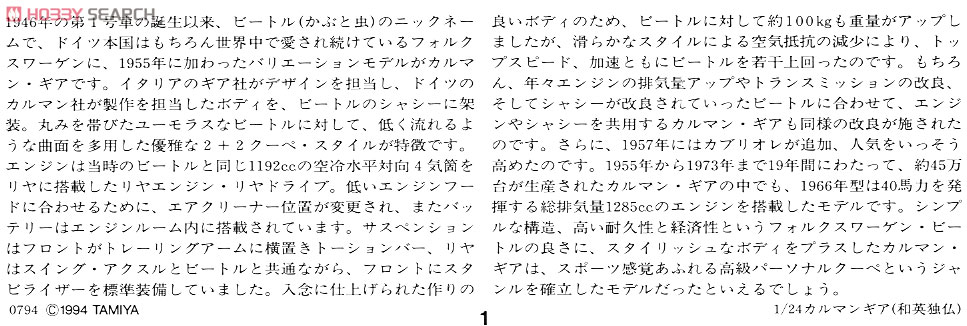 HOBBY SEARCH
1946年の第1号車の誕生以来、ビートル(かぶと虫)のニックネー
ムで、ドイツ本国はもちろん世界中で愛され続けているフォルク
スワーゲンに、1955年に加わったバリエーションモデルがカルマ
ン・ギアです。イタリアのギア社がデザインを担当し、ドイツの
カルマン社が製作を担当したボディを、ビートルのシャシーに架
装。丸みを帯びたユーモラスなビートルに対して、低く流れるよ
うな曲面を多用した優雅な2+2クーペ・スタイルが特徴です。
エンジンは当時のビートルと同じ1192ccの空冷水平対向4気筒を
リヤに搭載したリヤエンジン・リヤドライブ。低いエンジンフー
ドに合わせるために、エアクリーナー位置が変更され、またバッ
テリーはエンジンルーム内に搭載されています。サスペンション
はフロントがトレーリングアームに横置きトーションバー、リヤ
はスイング・アクスルとビートルと共通ながら、フロントにスタ
ビライザーを標準装備していました。入念に仕上げられた作りの
良いボディのため、ビートルに対して約100kgも重量がアップし
ましたが、滑らかなスタイルによる空気抵抗の減少により、トッ
プスピード、加速ともにビートルを若干上回ったのです。もちろ
ん、年々エンジンの排気量アップやトランスミッションの改良、
そしてシャシーが改良されていったビートルに合わせて、エンジ
ンやシャシーを共用するカルマン・ギアも同様の改良が施された
のです。さらに、1957年にはカブリオレが追加、人気をいっそう
高めたのです。1955年から1973年まで19年間にわたって、約45万
台が生産されたカルマン・ギアの中でも、1966年型は40馬力を発
揮する総排気量1285ccのエンジンを搭載したモデルです。シンプ
ルな構造、高い耐久性と経済性というフォルクスワーゲン・ビー
トルの良さに、スタイリッシュなボディをプラスしたカルマン・
ギアは、スポーツ感覚あふれる高級パーソナルクーペというジャ
ンルを確立したモデルだったといえるでしょう。
0794 ©1994 TAMIYA
1
1/24カルマンギア(和英独仏)